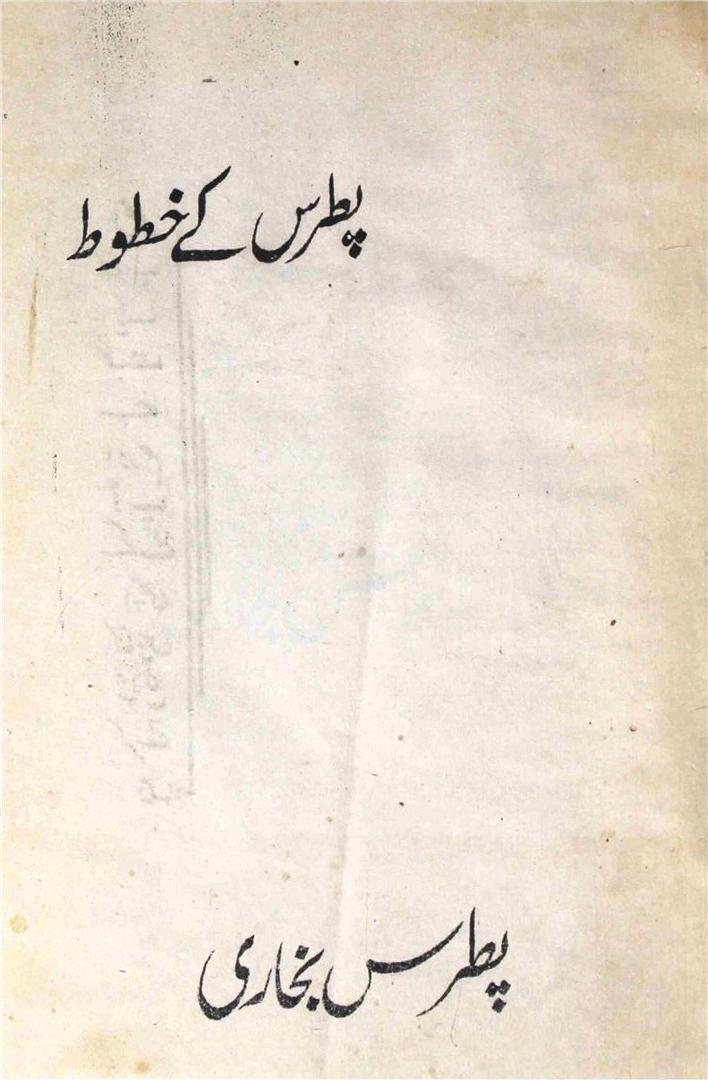 پطرس کے خطوط
پطرس بخاری